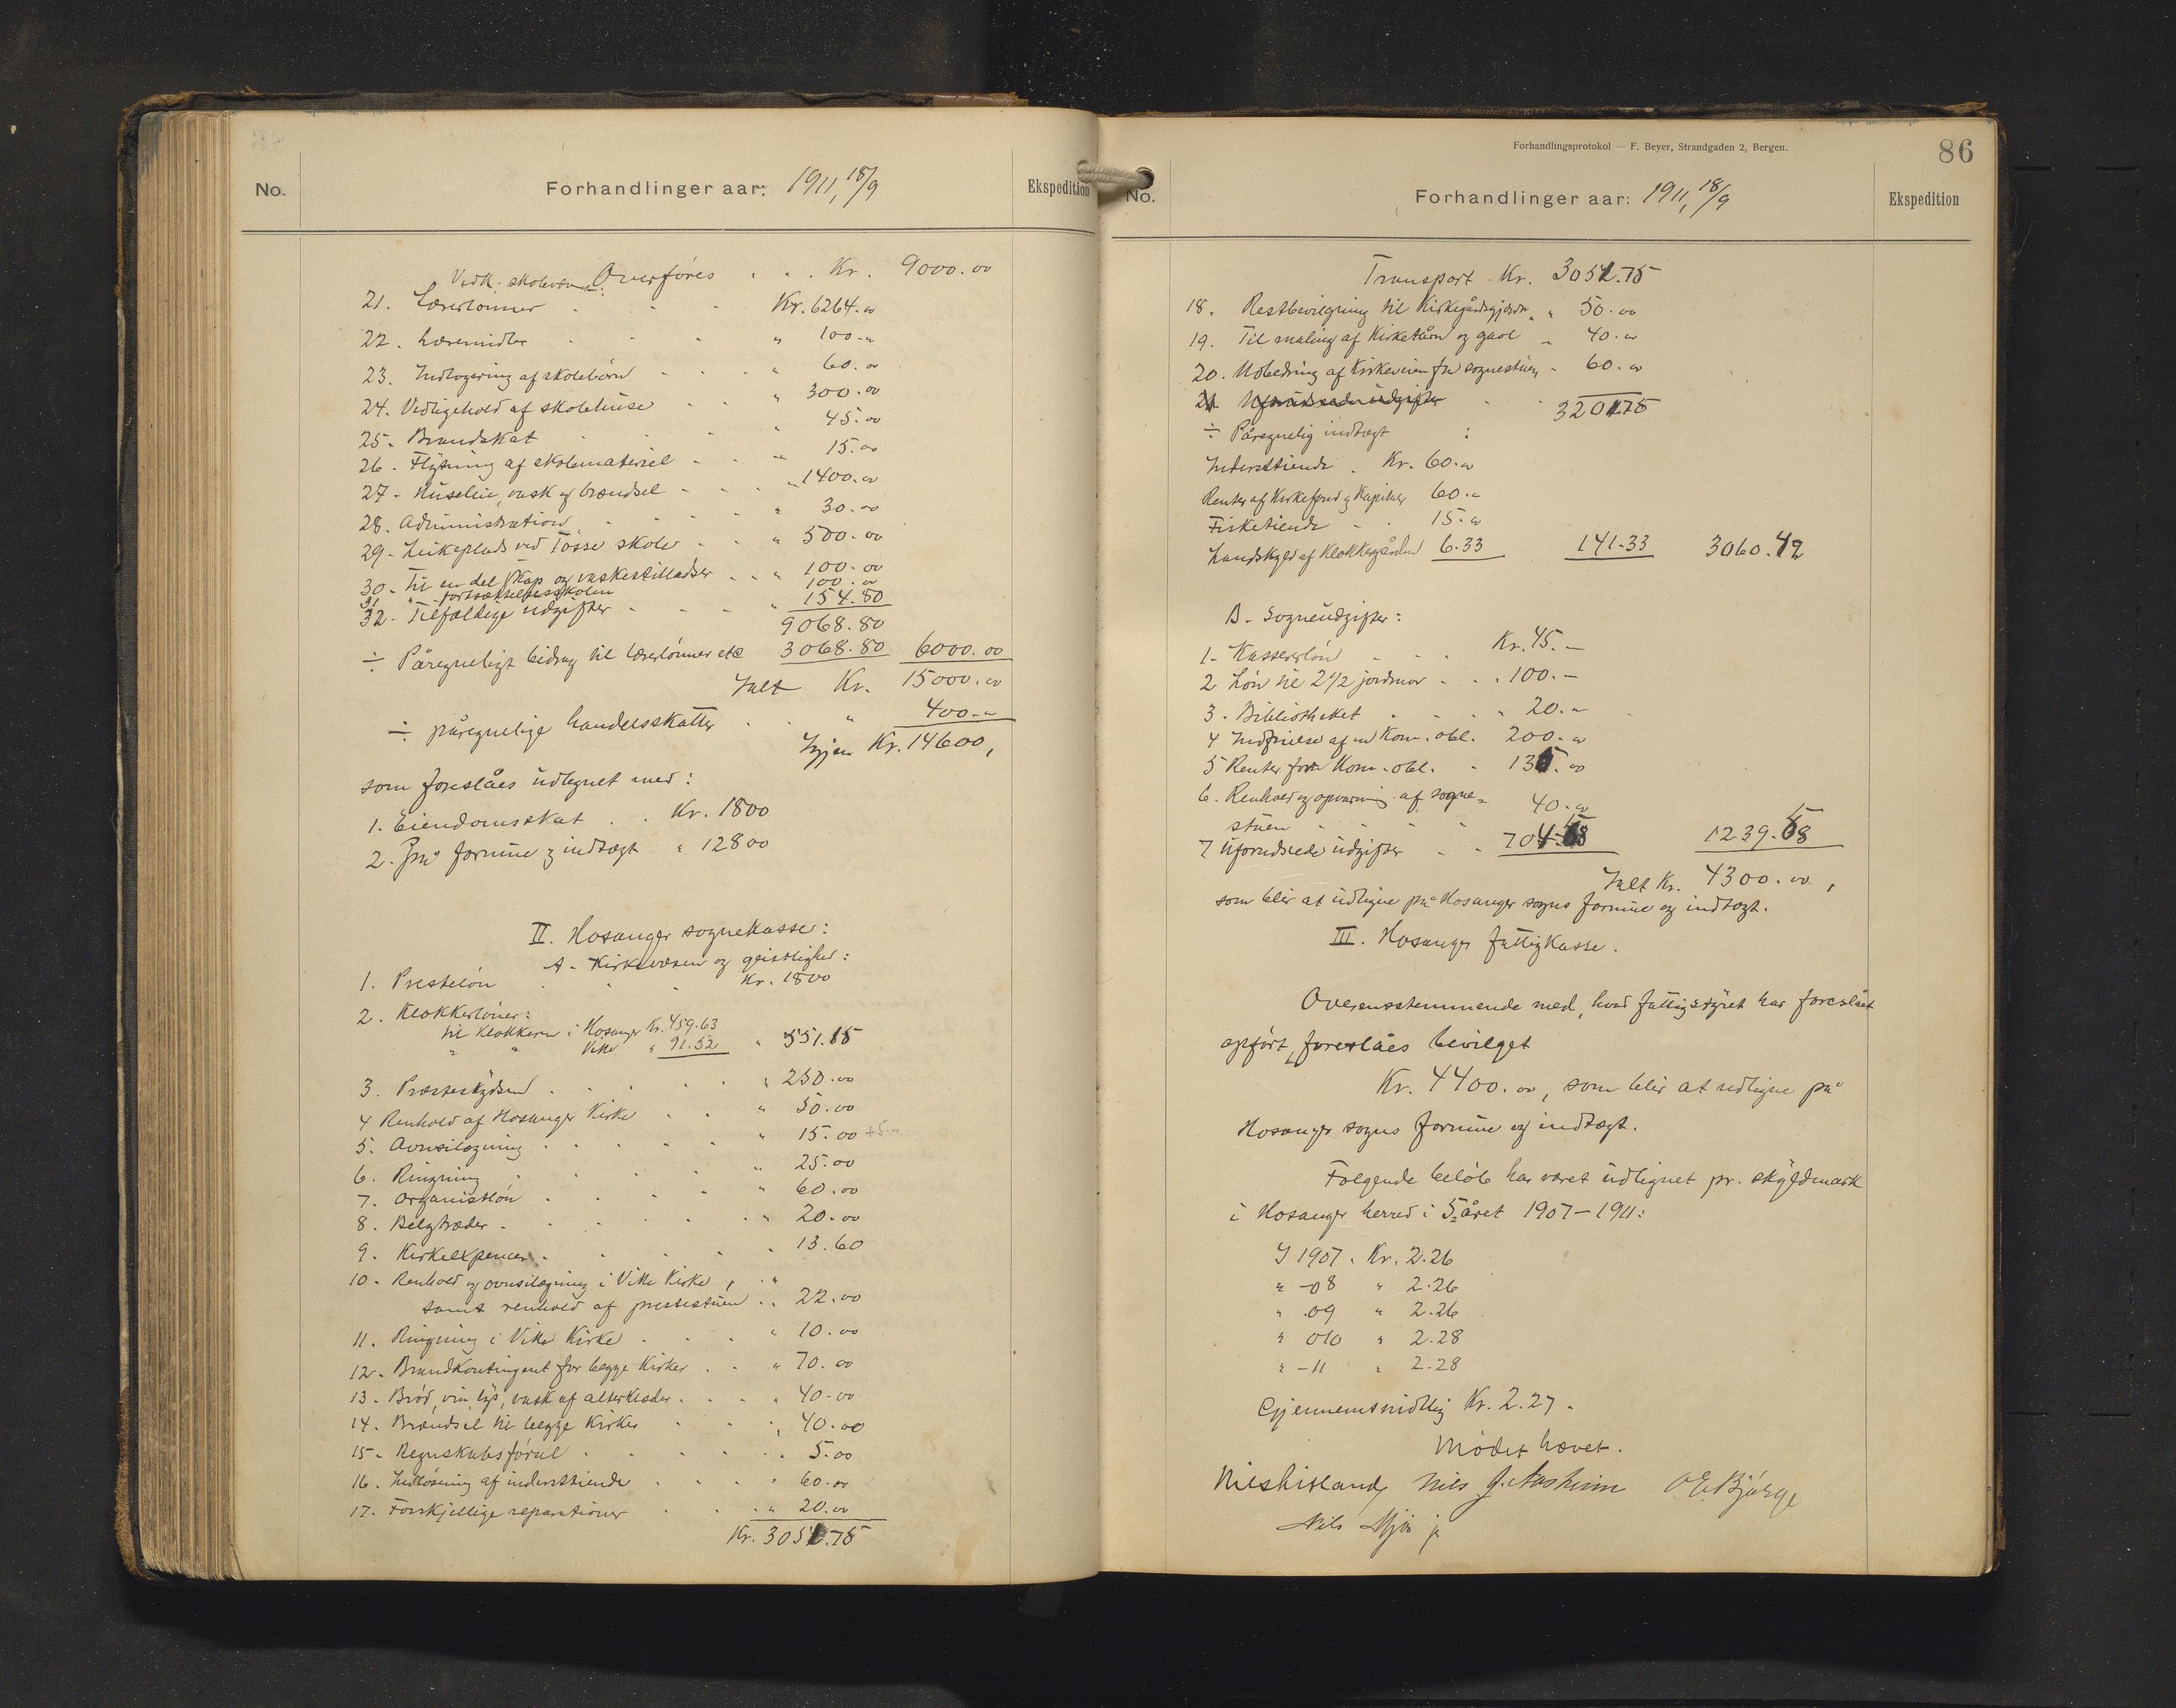 No. Forhandlinger aar: 1911, 18/9 Ekspedition
Overføres . . . Kr. 9000.00
Vedk. skolevæsenet:
21. Lærerlønner . . . Kr. 6264.00
22. Læremidler . . . " 100.00
23. Indlogering af skolebørn . . . " 60.00
24. Vedligehold af skolehuse . . " 300.00
25. Brandskat . . . " 45.00
26. Flytning af skolemateriel . . " 15.00
27. Husleie, vask og brændsel . . . " 1400.00
28. Administration . . . " 30.00
29. Leikeplads ved Tosse skole . . " 500.00
30. Til en del skap og vaskestilladser . . " 100.00
31 " fortsættelsesskolen 100.00
32. Tilfældige udgifter . . . " 154.80
9068.80
÷ Påregneligt bidrag til lærerlønner etc 3068.80 6000.00
Ialt Kr. 15000.00
÷ påregnelige handelsskatter . . " 400.00
Igjen Kr. 14600,
som foreslåes udlignet med:
1. Eiendomsskat . . Kr. 1800
2. På formue og indtægt " 12800
II. Hosanger sognekasse:
A. Kirkevæsen og geistlighed:
1. Presteløn . . . Kr. 1800
2. Klokkerlønner:
til klokkeren i Hosanger Kr. 459.63
" " Vike " 91.52 " 551.15
3. Præsteskydsen . . . " 250.00
4 Renhold af Hosanger Kirke . . " 50.00
5. Ovnsilægning . . . " 15.00 +5.00
6. Ringning . . . " 25.00
7. Organistløn . . . " 60.00
8. Belgtræder . . . " 20.00
9. Kirkeexpencer . . . " 13.60
10. Renhold og ovnsilægning i Vike Kirke, . "
samt renhold af prestestuen . . 22.00
11. Ringning i Vike Kirke . . . " 10.00
12. Brandkontingent for begge Kirker . . " 70.00
13. Brød, vin, lys, vask af alterklæder . . . " 40.00
14. Brændsel til begge Kirker . . . " 40.00
15. Regnskabsførsel . . . " 5.00
16. Indløsning af indersttiende . . . " 60.00
17. Forskjellige reparationer . . . " 20.00
Kr. 3051.75
Forhandlingsprotokol — F. Beyer, Strandgaden 2, Bergen.
86
No. Forhandlinger aar: 1911, 18/9 Ekspedition
Transport Kr. 3051.75
18. Restbevilgning til Kirkegårdsgjærde " " 50.00
19. Til maling af Kirketårn og gavl " 40.00
20. Udbedring af Kirkeveien før sognestuen " 60.00
21. Uforudseede udgifter . .
3201.75
÷ Påregnelig indtægt :
Indersttiende . Kr. 60.00
Renter af Kirkefond og Kapitaler 60.00
Fisketiende . . 15.00
Landskyld af Klokkergården 6.33 141.33 3060.42
B. Sogneudgifter:
1. Kassererløn . . . Kr. 45.—
2. Løn til 2 1/2 jordmor . . " 100.—
3. Bibliotheket . . . " 20.00
4 Indfrielse af en Kom. obl. 200.00
5 Renter for Kom. obl. " 130.00
6. Renhold og opvarming af sogne=
stuen . . . 40.00
7 Uforudseede udgifter . . 704.58 1239.58
Ialt Kr. 4300.00,
som blir at udligne på Hosanger sogns formue og indtægt.
III. Hosanger fattigkasse.
Overensstemmende med, hvad fattigstyret har foreslået
opført, foreslåes bevilget
Kr. 4400.00, som blir at udligne på
Hosanger sogns formue og indtægt.
Følgende beløb har været udlignet pr. skyldmark
i Hosanger herred i 5=året 1907–1911:
I 1907. Kr. 2.26
" -08 " 2.26
" .09 " 2.26
" 010 " 2.28
" -11 " 2.28
Gjennemsnidtlig Kr. 2.27.
Mødet hævet.
Nils Nils J. Aasheim O E Bjørge
Nils Mjøs jr